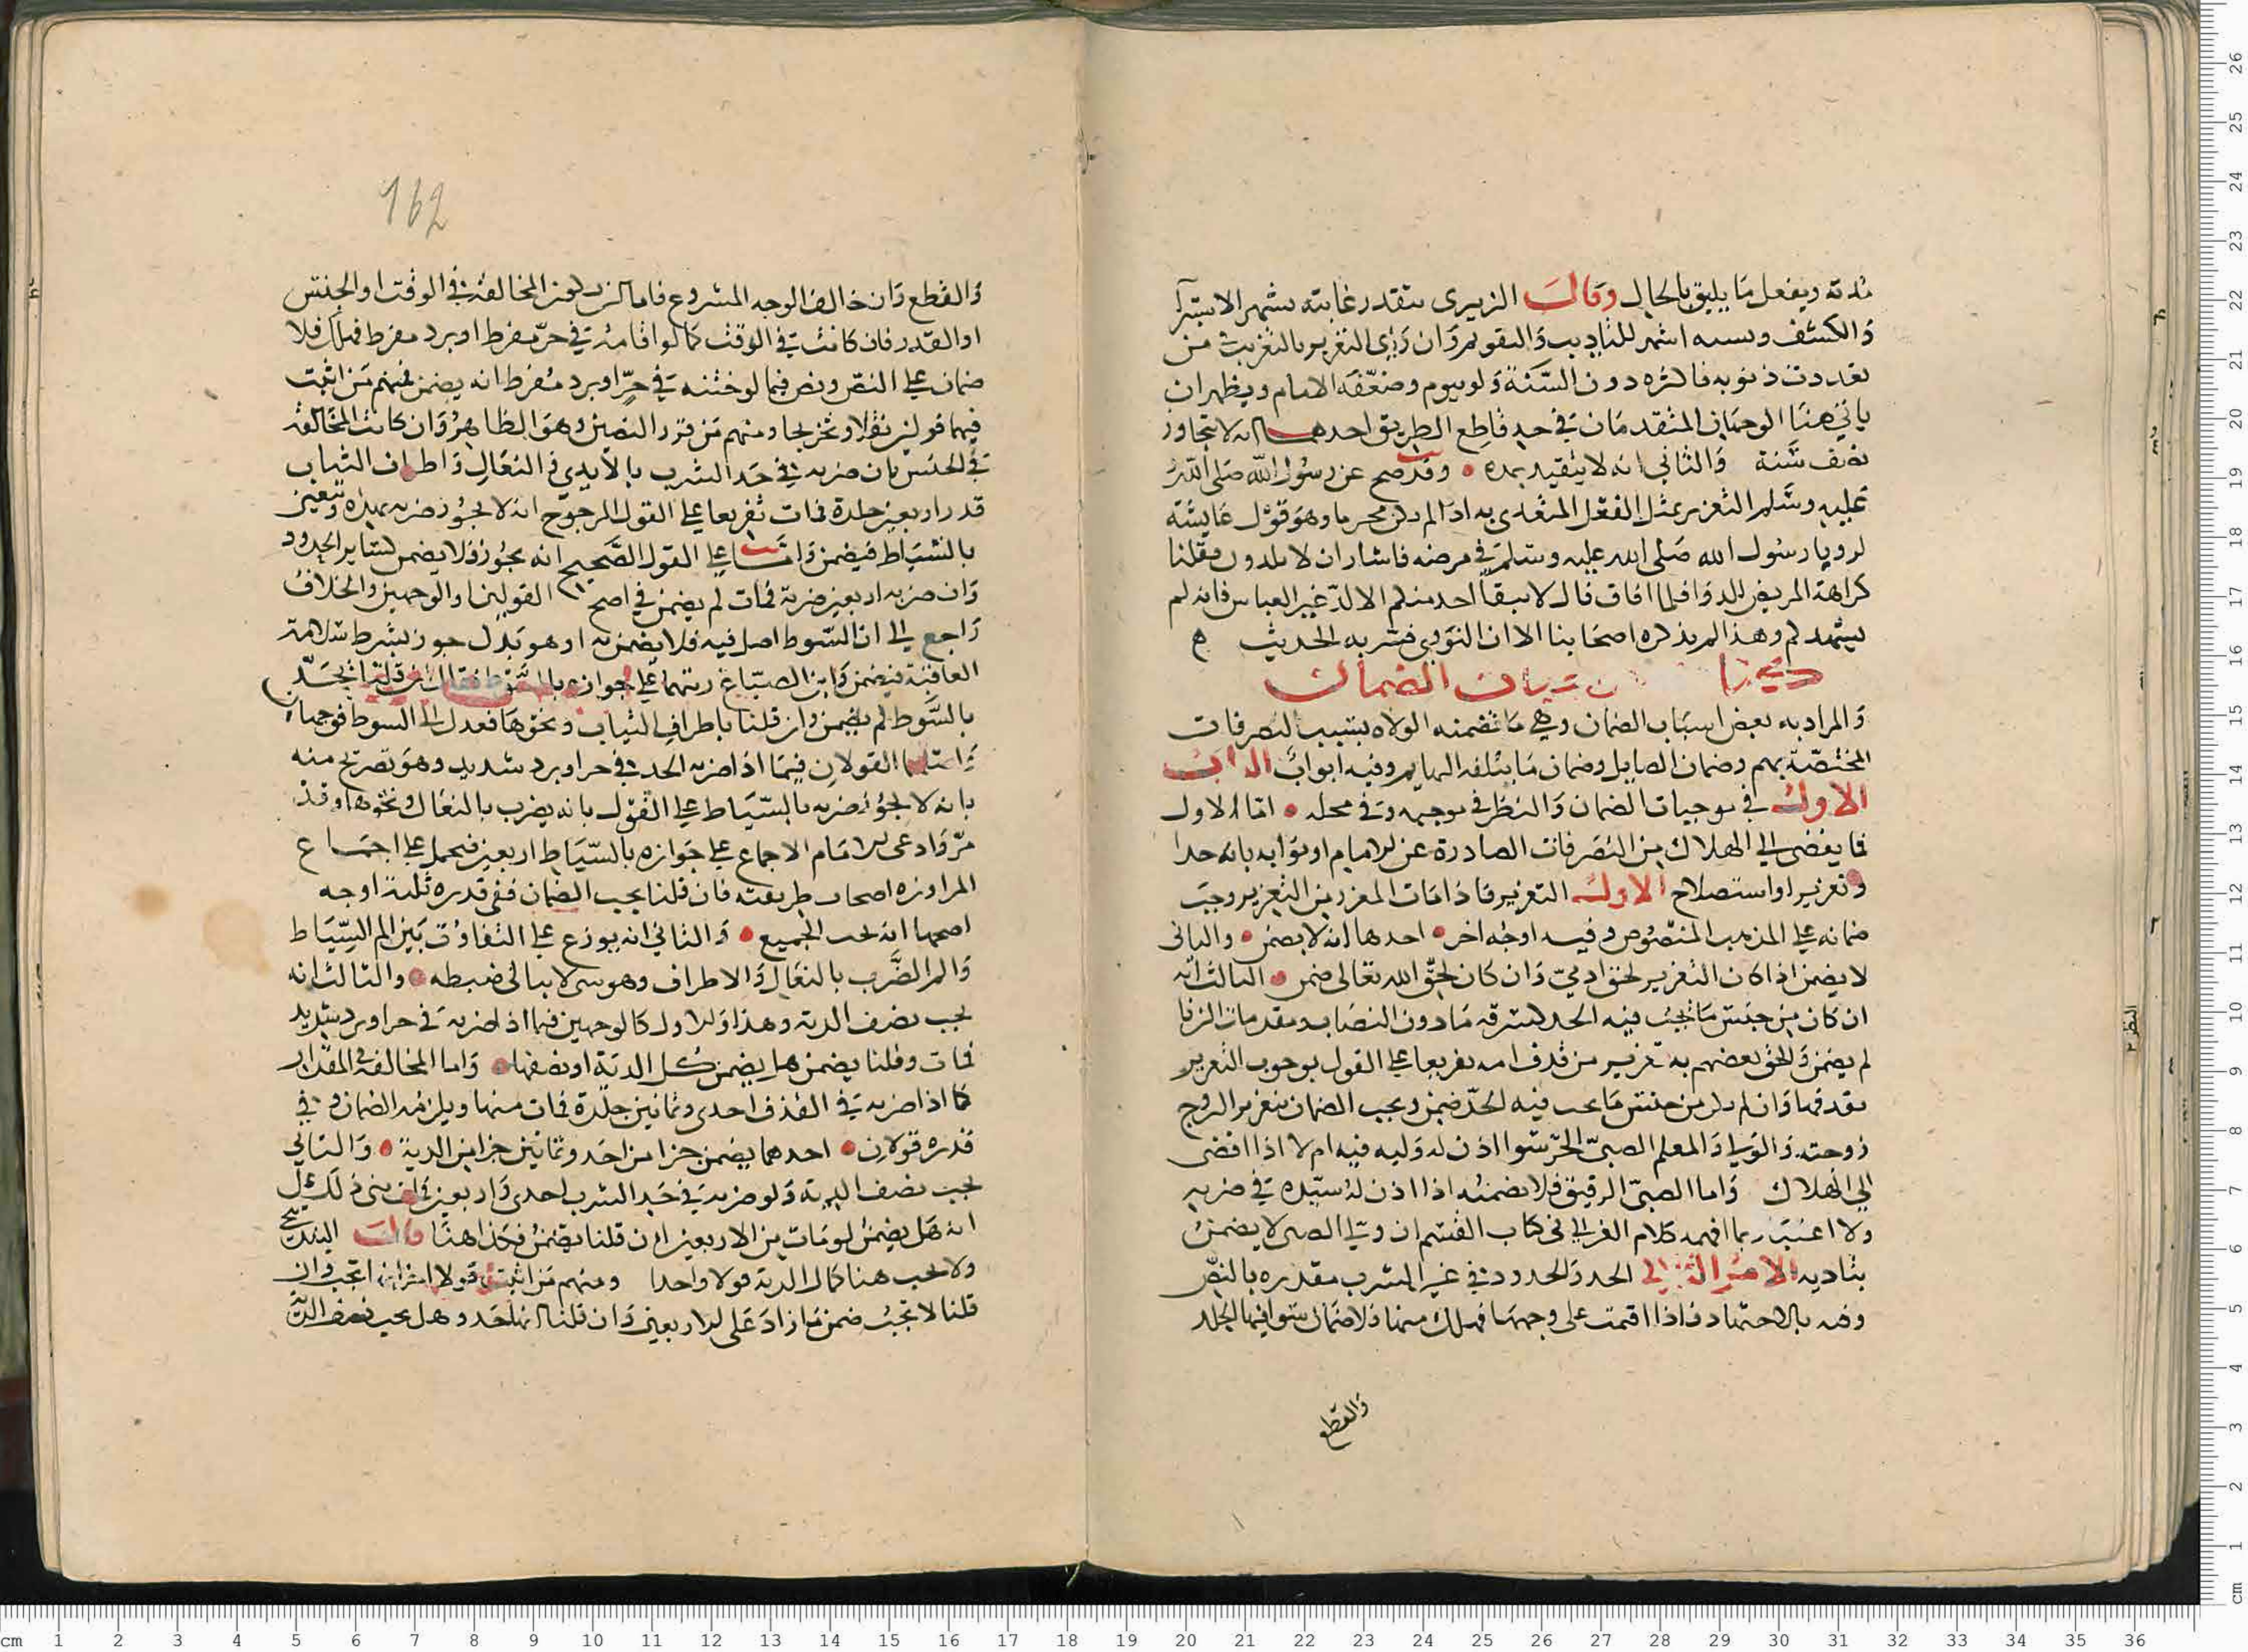 مدته ويفعل ما يليق بالحال وقال الزبيري يتقدر غايته بشهر الاستبرآ
والكشف وبستة اشهر للتاديب والتقويم وان رأى التعزير بالتغريب من
تعددت ذنوبه فاكثره دون السنة ولو بيوم وضعفه الامام ويظهر ان
ياتي هنا الوجهان المتقدمان في حد قاطع الطريق احدهما انه لا يتجاوز
نصف سنة والثاني انه لا يتقيد بمدة وقد صح عن رسول الله صلى الله
عليه وسلم التعزير بمثل الفعل المتعدي به اذا لم يكن محرما وهو قول عايشة
رسول الله صلى الله عليه وسلم في مرضه فاشار ان لا تلدوني فقلنا
كراهة المريض للدوا فلما افاق قال لا يبقا احد منكم الا لد غير العباس فانه لم
يشهدكم وهذا لم يذكره اصحابنا الا ان النووي فسر به الحديث
بيان الضمان
والمراد به بعض اسباب الضمان وهي ما تضمنه الولاة بسبب التصرفات
المختصة بهم وضمان الصايل وضمان ما يتلفه البهايم وفيه ابواب الباب
الاول في موجبات الضمان والنظر في موجبه وفي محله اما الاول
فما يفضي الي الهلاك من التصرفات الصادرة عن الامام او نوابه بانه حدا
وتعزيرا واستصلاح الاول التعزير فاذا مات المعزر من التعزير وجب
ضمانه علي المذهب المنصوص وفيه اوجه اخر احدها انه لا يضمن والثاني
لا يضمن اذا كان التعزير لحق ادمي وان كان لحق الله تعالى ضمن الثالث انه
ان كان من جنس ما يجب فيه الحد كسرقة ما دون النصاب ومقدمات الزنا
لم يضمن والحق بعضهم به تعزير من قذف امه تفريعا علي القول بوجوب التعزير
بقذفها وان لم يكن من جنس ما يجب فيه الحد ضمن ويجب الضمان بتعزير الزوج
زوجته والولي والمعلم الصبي الحر سوا اذن له وليه فيه ام لا اذا افضى
الي الهلاك واما الصبي الرقيق فلا يضمنه اذا اذن له سيده في ضربه
ولا اعتبار بما افهمه كلام الغزالي في كتاب القسم ان ولي الصبي لا يضمن
بتاديبه الامر الثاني الحد والحدود في غير الشرب مقدره بالنص
وفيه بالاجتهاد فاذا اقيمت على وجهها فهلك منها فلا ضمان سوا فيها الجلد
والقطع
162
والقطع وان خالف الوجه المشروع فاما ان يكون المخالفة في الوقت او الجنس
او القدر فان كانت في الوقت كما لو اقامه في حر مفرط او برد مفرط فهلك فلا
ضمان علي النص ونص فيما لو ختنه في حر او برد مفرط انه يضمن فمنهم من اثبت
فيهما قولين نقلا وتخريجا ومنهم من قرر النصين وهو الظاهر وان كانت المخالفة
في الجنس بان ضربه في حد الشرب بالايدي والنعال واطراف الثياب
قدر اربعين جلدة فمات تفريعا علي القول المرجوح انه لا يجوز ضربه بهذه ويتعين
بالسياط فيضمن واما علي القول الصحيح انه يجوز فلا يضمن كساير الحدود
وان ضربه اربعين ضربة فمات لم يضمن في اصح القولين او الوجهين والخلاف
راجع الي ان السوط اصل فيه فلا يضمن به او هو بدل جوز بشرط سلامة
العاقبة فيضمن وابن الصباغ رتبهما علي جوازه بالسوط فقال ان قلنا يحد
بالسوط لم يضمن وان قلنا باطراف الثياب ونحوها فعدل الي السوط فوجهان
واصلهما القولان فيما اذا ضربه الحد في حر او برد شديد وهو تصريح منه
بانه لا يجوز ضربه بالسياط علي القول بانه يضرب بالنعال ونحوها وقد
مر وادعى الامام الاجماع علي جوازه بالسياط اربعين فيحمل علي اجماع
المراوزه اصحاب طريقته فان قلنا يجب الضمان ففي قدره ثلثة اوجه
اصحها انه يجب الجميع والثاني انه يوزع علي التفاوت بين الم السياط
والم الضرب بالنعال والاطراف وهو شي لا يبالى ضبطه والثالث انه
يجب نصف الدية وهذا والاول كالوجهين فيما اذا ضربه في حر او برد شديد
فمات وقلنا يضمن هل يضمن كل الدية او نصفها واما المخالفة في المقدار
كما اذا ضربه في القذف احدى وثمانين جلدة فمات منها ويلزمه الضمان وفي
قدره قولان احدهما يضمن جزا من احد وثمانين جزا من الدية والثاني
يجب نصف الدية ولو ضربه في حد الشرب احدى واربعين فمات بنى ذلك على
انه هل يضمن لو مات من الاربعين ان قلنا يضمن فكذا هنا قال البندنيجي
ولا يجب هنا كمال الدية قولا واحدا ومنهم من اثبت قولا انها تجب وان
قلنا لا تجب ضمن ما زاد على الاربعين وان قلنا انها حد وهل يجب نصف الدية